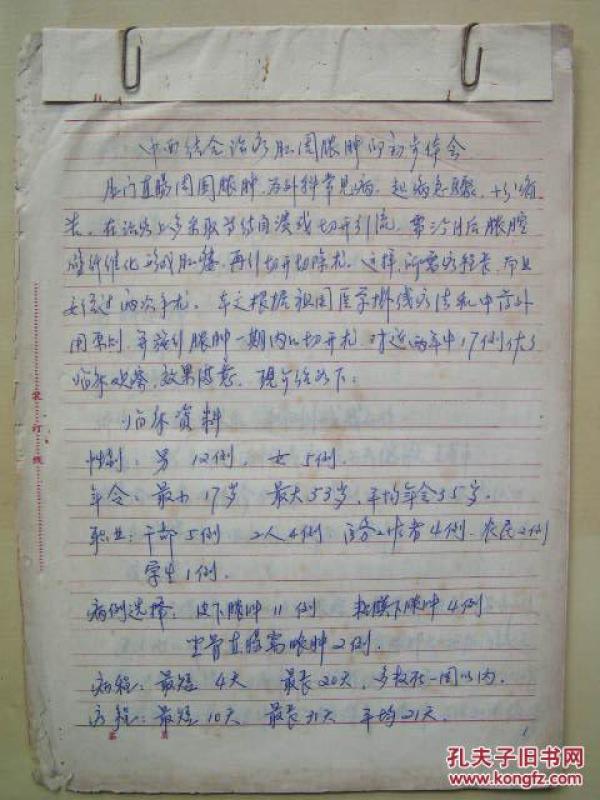 中西结合治疗肛周脓肿的初步体会
肛门直肠周围脓肿,为外科常见病。起病急骤,十分痛
苦。在治疗上多采取等待自溃或切开引流,需待日后脓腔
纤维化形成肛瘘,再行切开切除术。这样,所需疗程长,而且
要经过两次手术。本文根据祖国医学挂线疗法和中药外
用原则,并施行脓肿一期内口切开术,对近两年中17例作了
临床观察,效果满意。现介绍如下:
临床资料
性别:男 12例,女 5例.
年令:最小 17岁 最大53岁,平均年令35岁.
职业:干部5例 工人4例 医务工作者4例.农民2例
学生1例.
病例选择:皮下脓肿 11例 粘膜下脓肿4例
坐骨直肠窝脓肿2例.
病程:最短 4天 最长20天,多数在一周以内.
疗程:最短10天 最长31天 平均21天.
1
装订线
孔夫子旧书网
www.kongfz.com